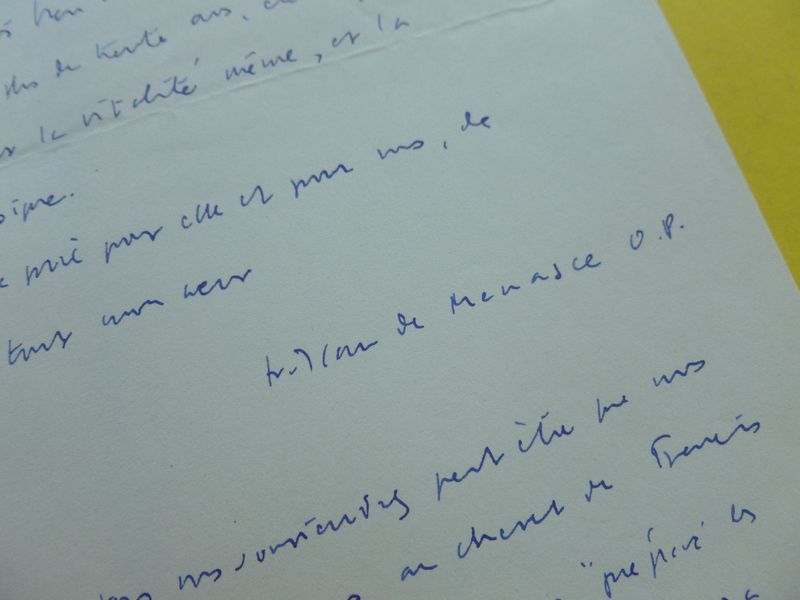 de trente ans,
la vitalité même, et la
prie pour elle et pour vous, de
tout mon cœur
fr. Jean de Menasce O.P.
vous souviendrez peut être que nous
au chevet de Francis
"préparé les